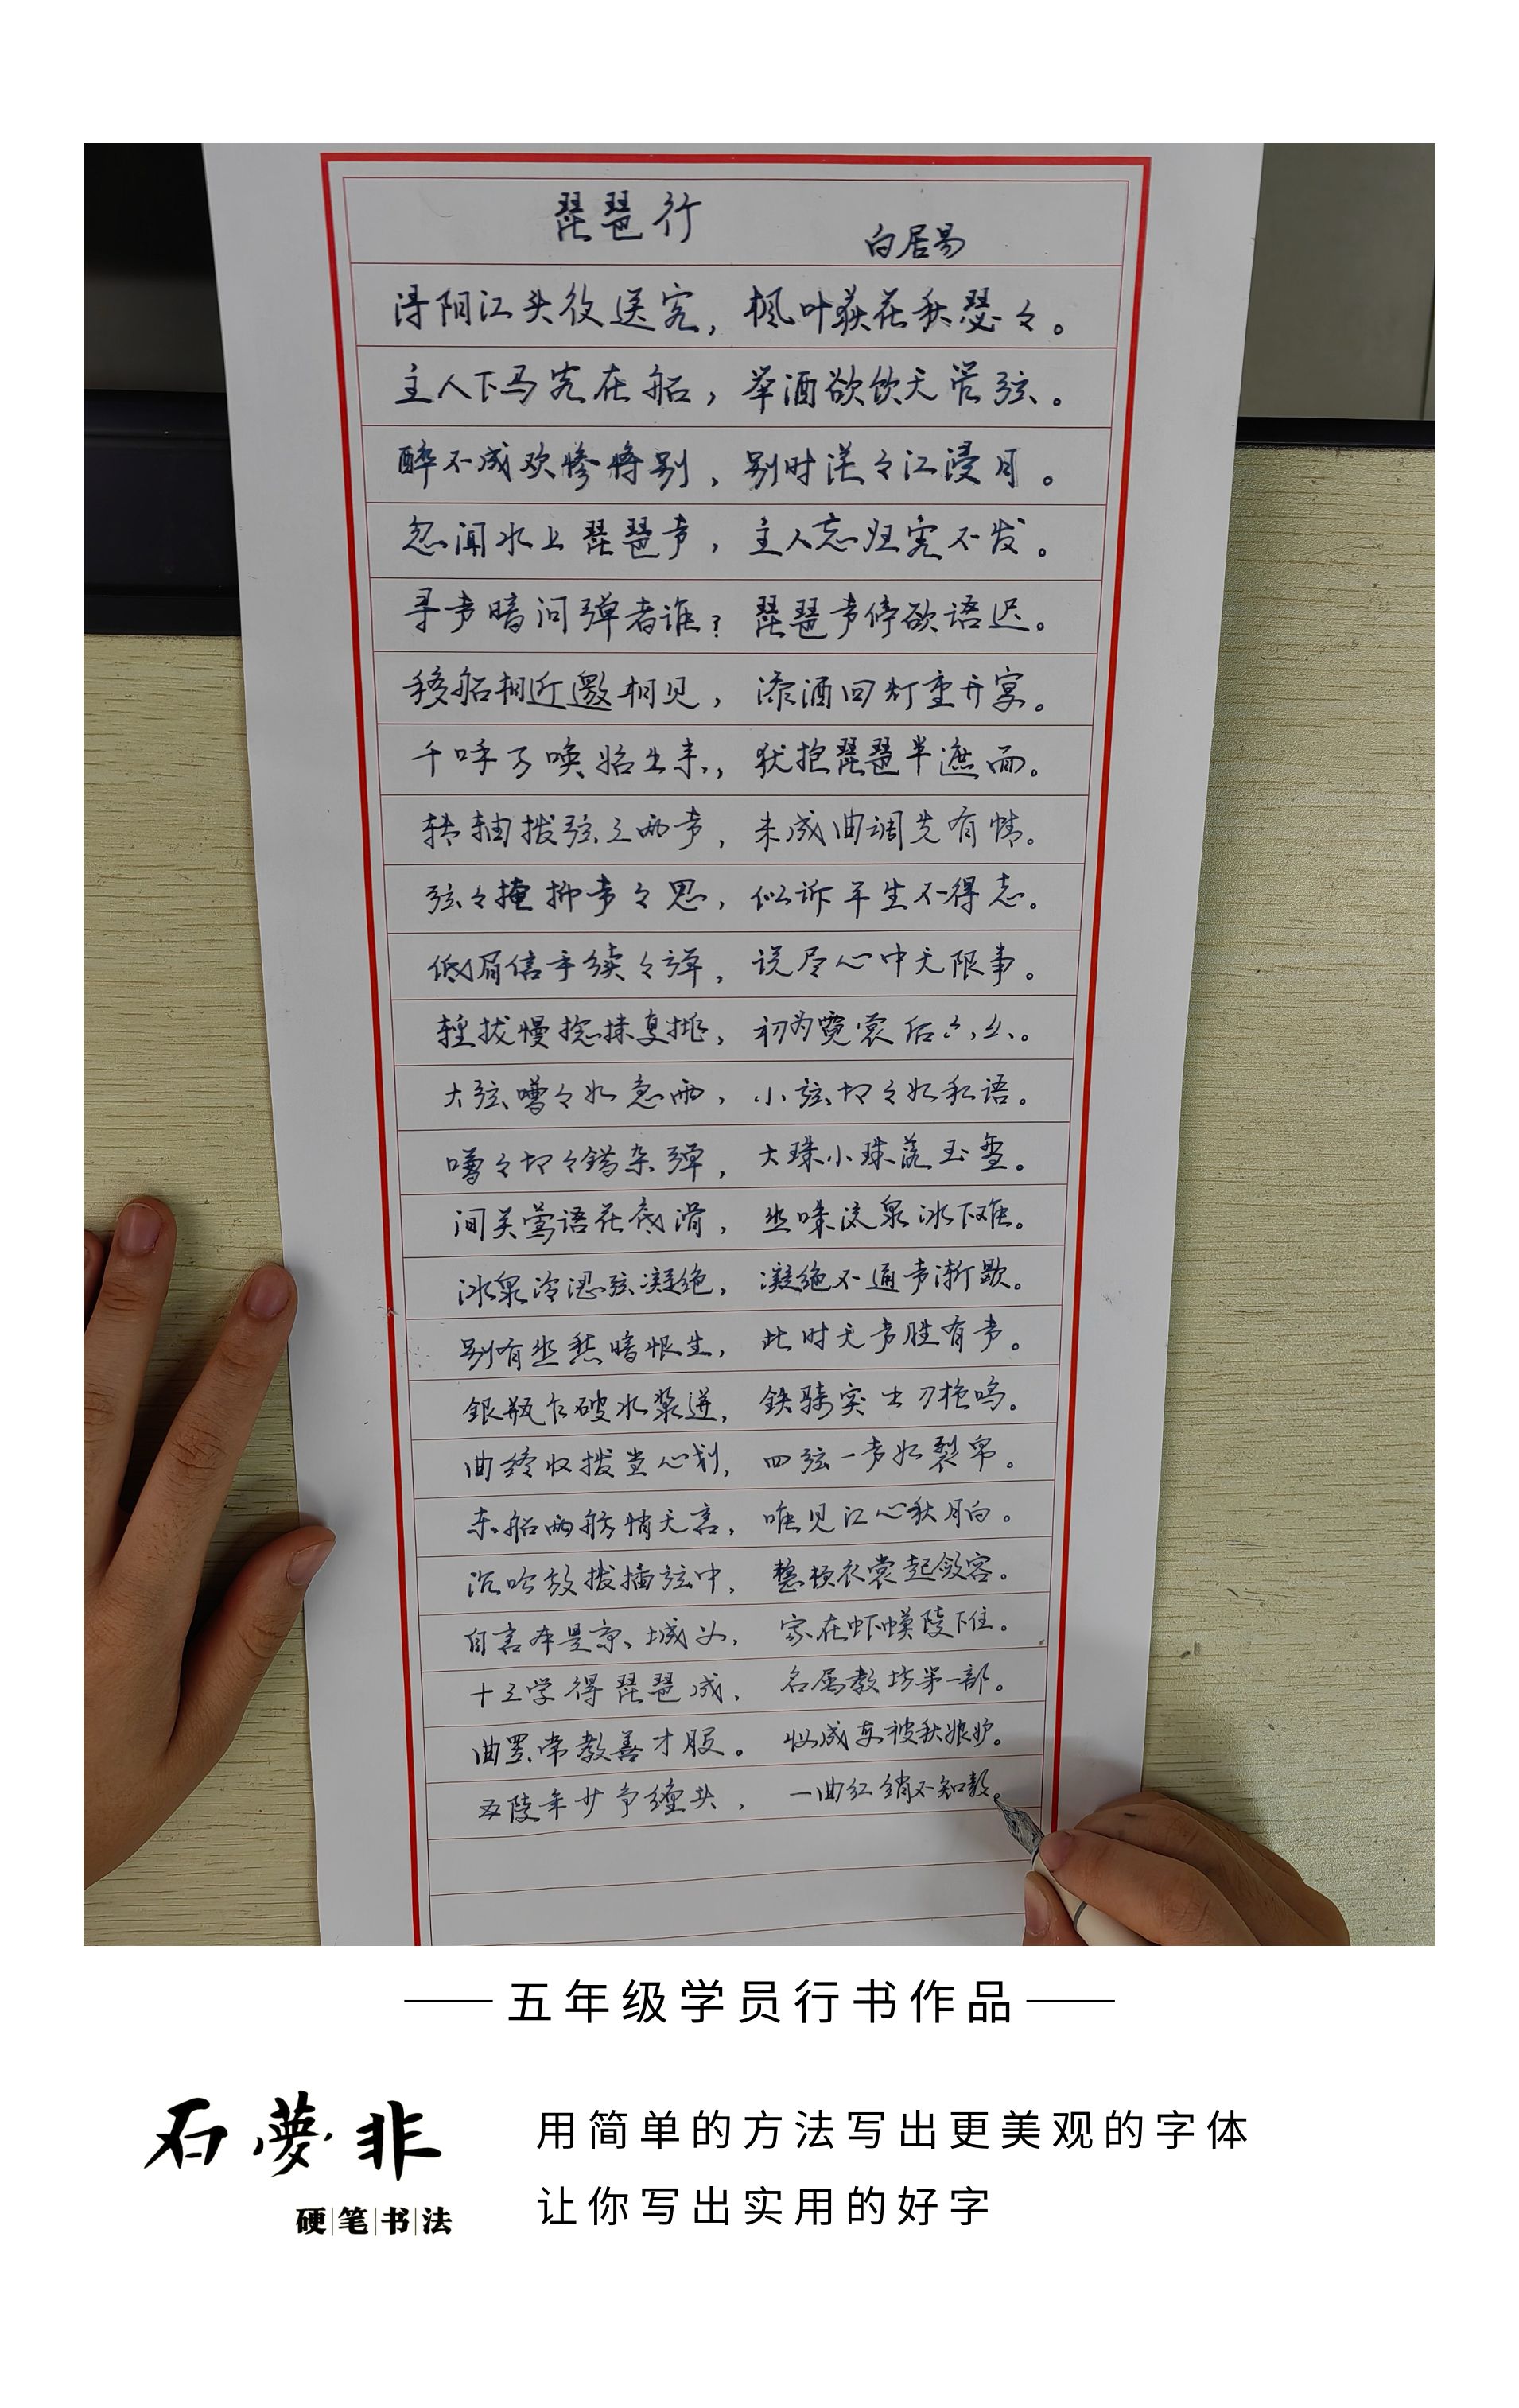 琵琶行 白居易
浔阳江头夜送客，枫叶荻花秋瑟々。
主人下马客在船，举酒欲饮无管弦。
醉不成欢惨将别，别时茫々江浸月。
忽闻水上琵琶声，主人忘归客不发。
寻声暗问弹者谁？琵琶声停欲语迟。
移船相近邀相见，添酒回灯重开宴。
千呼万唤始出来，犹抱琵琶半遮面。
转轴拨弦三两声，未成曲调先有情。
弦々掩抑声々思，似诉平生不得志。
低眉信手续々弹，说尽心中无限事。
轻拢慢捻抹复挑，初为霓裳后六幺。
大弦嘈々如急雨，小弦切々如私语。
嘈々切々错杂弹，大珠小珠落玉盘。
间关莺语花底滑，幽咽流泉冰下难。
冰泉冷涩弦凝绝，凝绝不通声渐歇。
别有幽愁暗恨生，此时无声胜有声。
银瓶乍破水浆迸，铁骑突出刀枪鸣。
曲终收拨当心划，四弦一声如裂帛。
东船西舫悄无言，唯见江心秋月白。
沉吟放拨插弦中，整顿衣裳起敛容。
自言本是京城女，家在虾蟆陵下住。
十三学得琵琶成，名属教坊第一部。
曲罢常教善才服。妆成每被秋娘妒。
五陵年少争缠头，一曲红绡不知数。
五年级学员行书作品
石夢非
硬笔书法
用简单的方法写出更美观的字体
让你写出实用的好字